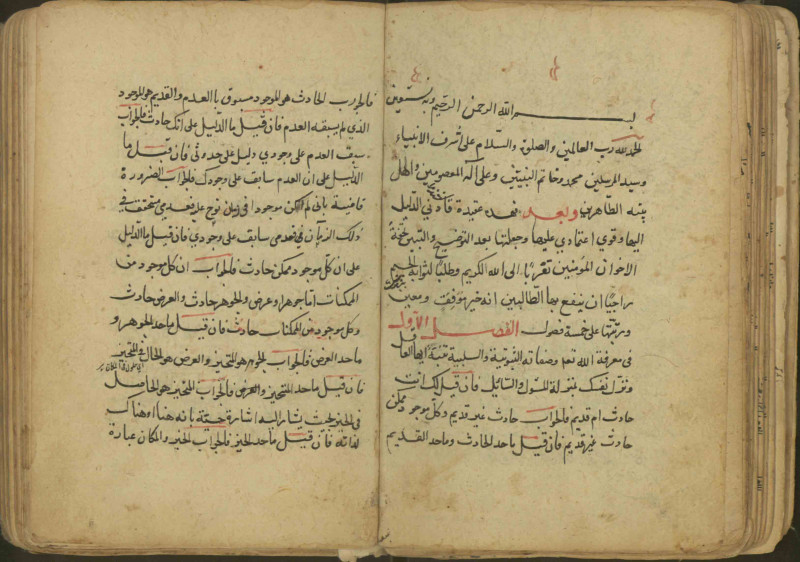 بسم الله الرحمن الرحيم وبه نستعين
الحمد لله رب العالمين والصلوة والسلام على اشرف الانبياء
وسيد المرسلين محمد وخاتم النبيين وعلى آله المعصومين واهل
بيته الطاهرين وبعد فهذه عقيدة قادني الدليل
اليها وقوي اعتمادي عليها وجعلتها بعد التوضيح والتبيين تحفة
الاخوان المؤمنين تقربا الى الله الكريم وطلبا لثوابه الجسيم
راجيا ان ينفع بها الطالبين انه خير موفق ومعين
ورتبتها على خمسة فصول الفصل الأول
في معرفة الله تعم وصفاته الثبوتية والسلبية
ونزل نفسك منزلة المسئول والسائل فان قيل لك انت
حادث ام قديم فالجواب حادث غير قديم وكل موجود ممكن
حادث غير قديم فان قيل ما حد الحادث وما حد القديم
فالجواب الحادث هو الموجود مسبوق بالعدم والقديم هو الموجود
الذي لم يسبقه العدم فان قيل ما الدليل على انك حادث فالجواب
سبق العدم على وجودي دليل على حدوثي فان قيل ما
الدليل على ان العدم سابق على وجودك فالجواب الضرورة
قاضية باني لم اكن موجودا في زمان نوح عم فعدمي متحقق في
ذلك الزمان فعدمي سابق على وجودي فان قيل ما الدليل
على ان كل موجود ممكن حادث فالجواب ان كل موجود من
الممكنات اما جوهر او عرض والجوهر حادث والعرض حادث
وكل موجود من الممكنات حادث فان قيل ما حد الجوهر و
ما حد العرض فالجواب الجوهر هو المتحيز والعرض هو الحال في المتحيز
فان قيل ما حد المتحيز والعرض فالجواب المتحيز هو الحاصل
في الحيز بحيث يشار اليه اشارة حسية بانه هنا او هناك
لذاته فان قيل ما حد الحيز فالجواب الحيز والمكان عبارة